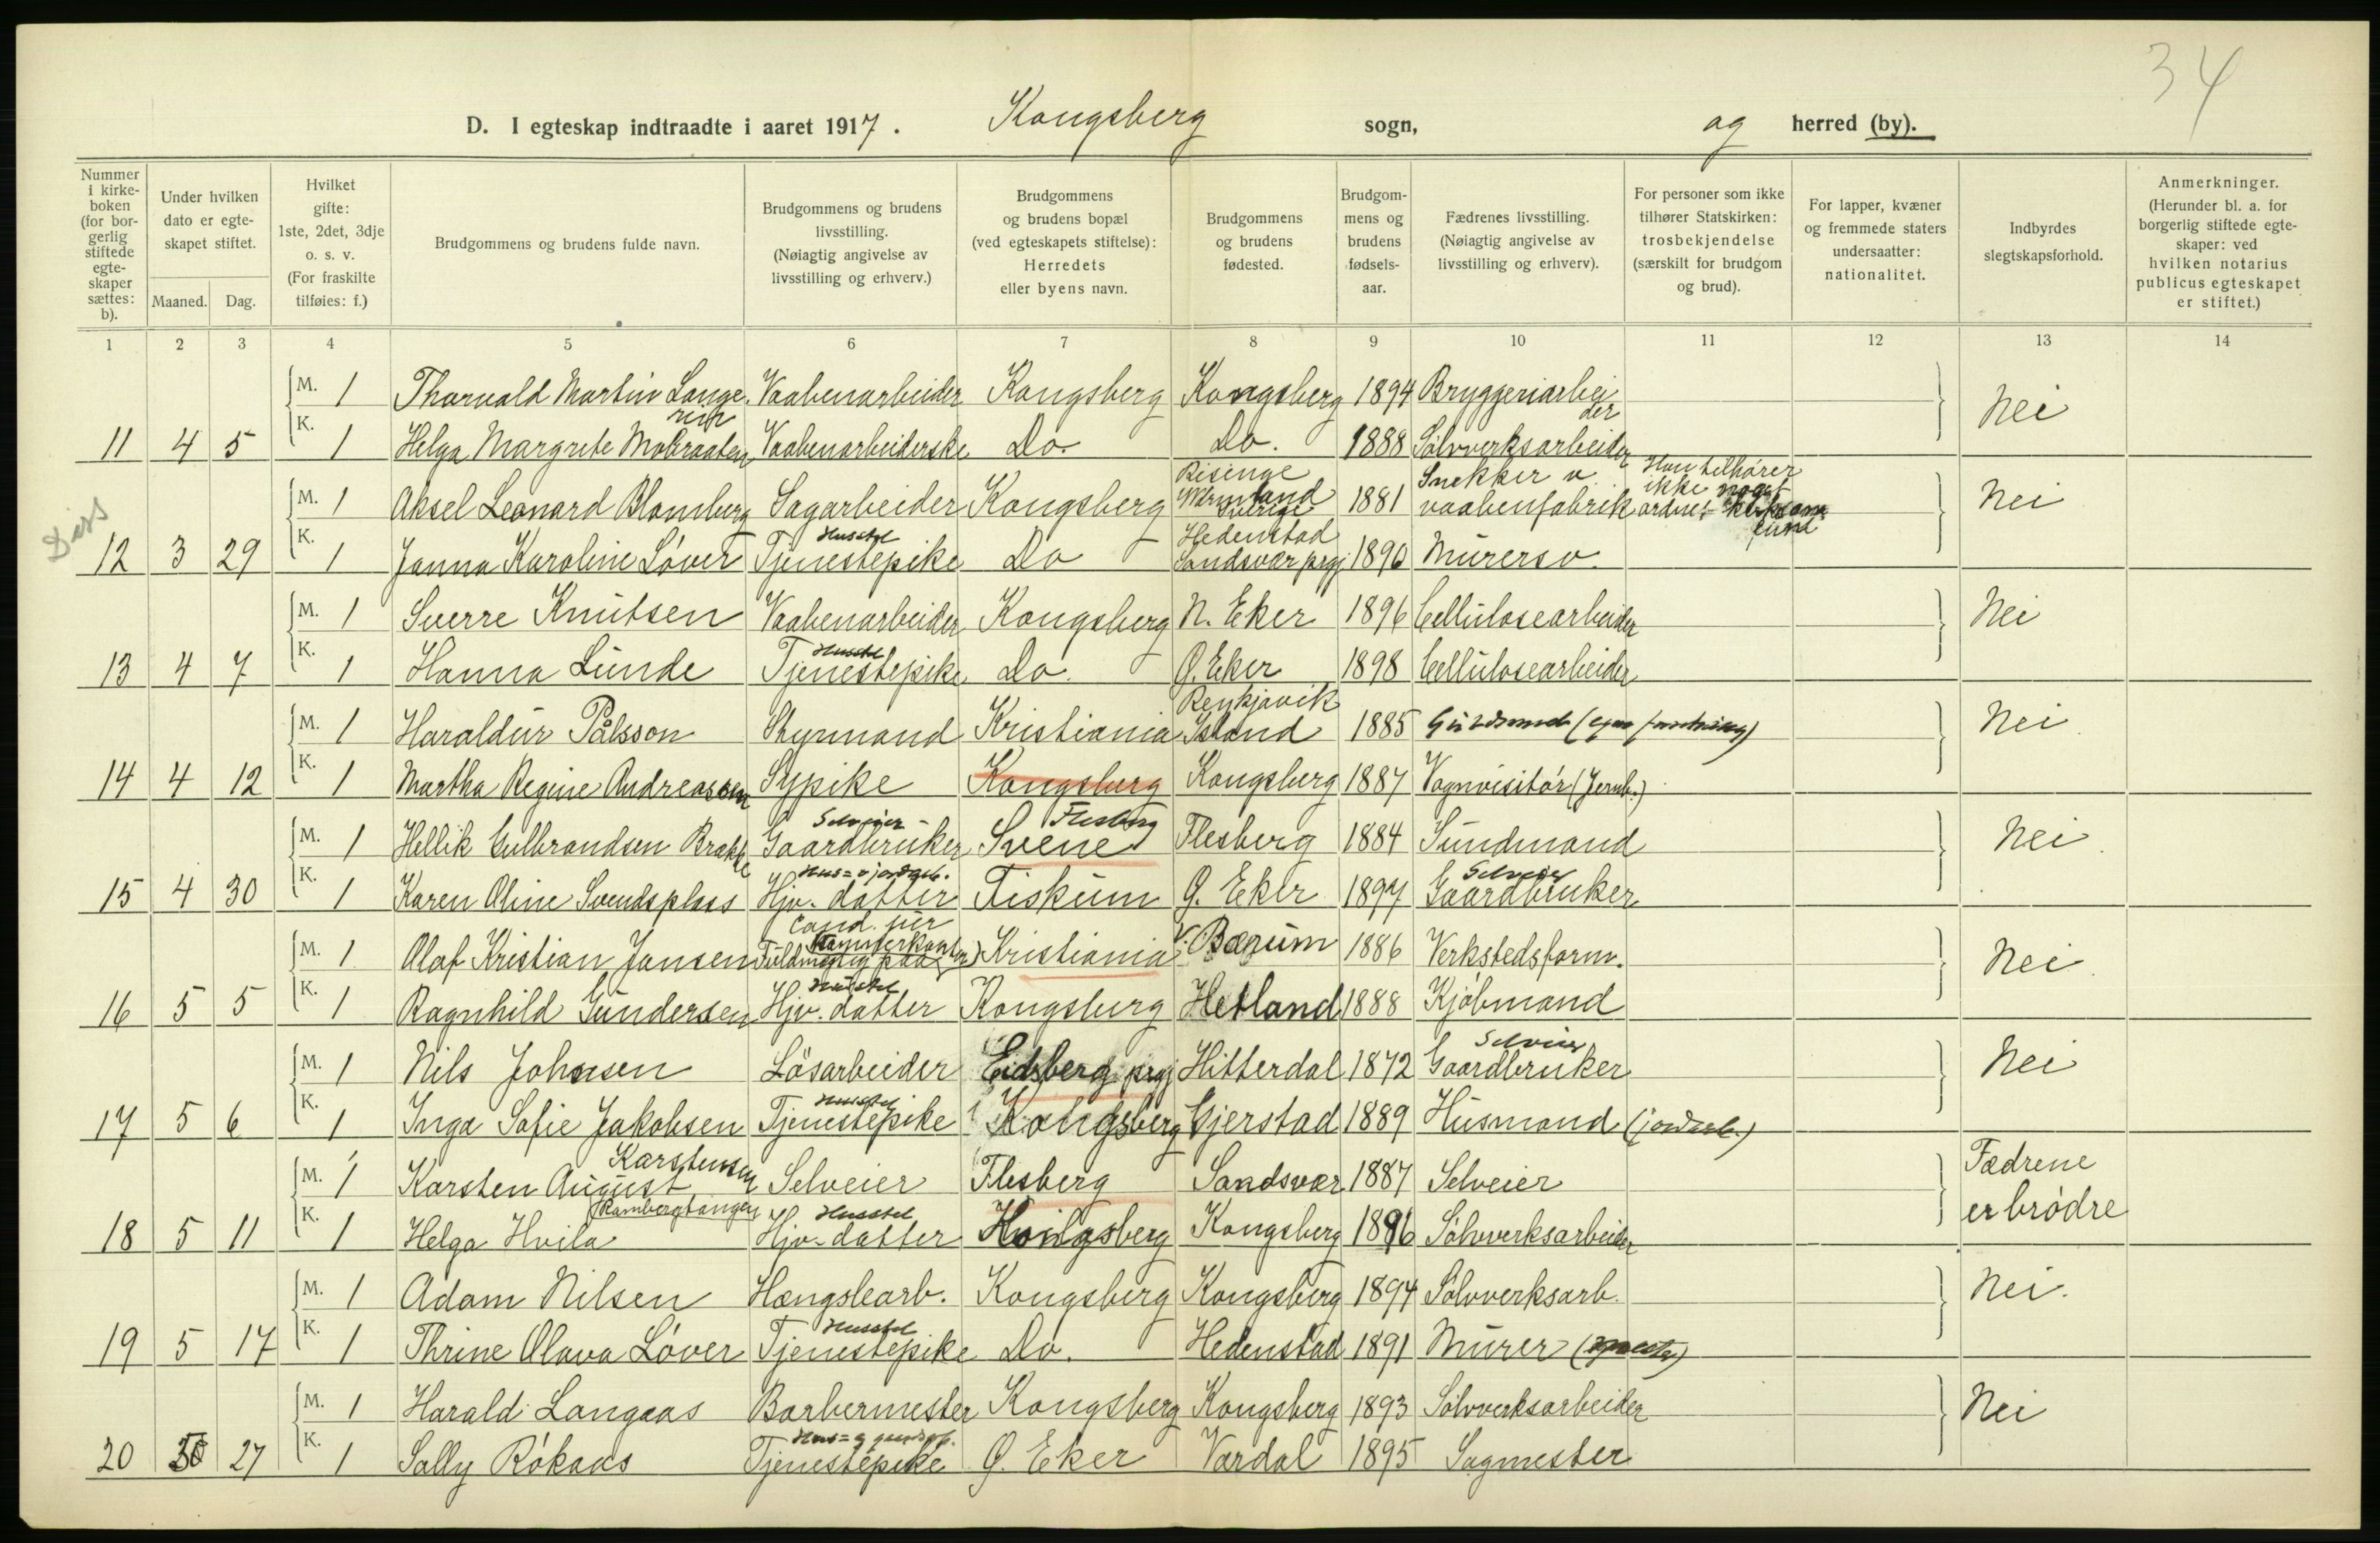 34
D. I egteskap indtraadte i aaret 1917. Kongsberg sogn, og herred (by).
Nummer i kirkeboken (for borgerlig stiftede egteskaper sættes: b).
Under hvilken dato er egteskapet stiftet.
Maaned. Dag.
Hvilket gifte: 1ste, 2det, 3dje o. s. v. (For fraskilte tilføies: f.)
Brudgommens og brudens fulde navn.
Brudgommens og brudens livsstilling. (Nøiagtig angivelse av livsstilling og erhverv.)
Brudgommens og brudens bopæl (ved egteskapets stiftelse): Herredets eller byens navn.
Brudgommens og brudens fødested.
Brudgommens og brudens fødselsaar.
Fædrenes livsstilling. (Nøiagtig angivelse av livsstilling og erhverv).
For personer som ikke tilhører Statskirken: trosbekjendelse (særskilt for brudgom og brud).
For lapper, kvæner og fremmede staters undersaatter: nationalitet.
Indbyrdes slegtskapsforhold.
Anmerkninger. (Herunder bl. a. for borgerlig stiftede egteskaper: ved hvilken notarius publicus egteskapet er stiftet.)
1 2 3 4 5 6 7 8 9 10 11 12 13 14
M. 1 Thorvald Martin Langerud Vaabenarbeider Kongsberg Kongsberg 1894 Bryggeriarbeider Nei
11 4 5 K. 1 Helga Margrete Mobraaten Vaabenarbeiderske Do. Do. 1888 Sölvverksarbeider
M. 1 Aksel Leonard Blomberg Sagarbeider Kongsberg Risinge Wermland Sverige 1881 Snekker v. vaabenfabrik Han tilhører ikke noget ordnet kirkesamfund Nei
12 3 29 K. 1 Janna Karoline Løver Tjenestepike Husstel Do Hedenstad Sandsvær prgj 1890 Murersv.
M. 1 Sverre Knutsen Vaabenarbeider Kongsberg N. Eker 1896 Cellulosearbeider Nei
13 4 7 K. 1 Hanna Lunde Tjenestepike Husstel Do. Ø. Eker 1898 Cellulosearbeider
M. 1 Haraldur Pálsson Styrmand Kristiania Reykjavik Island 1885 Nei
14 4 12 K. 1 Martha Regine Andreassen Sypike Kongsberg Kongsberg 1887 Vognvisitör (Jernb.)
M. 1 Hellik Gulbrandsen Brakke Selveier Gaardbruker Svene Flesberg Flesberg 1884 Sundmand Nei.
15 4 30 K. 1 Karen Oline Svendsplass Hus- o jordarb. Hjv. datter Fiskum Ø. Eker 1897 Selveier Gaardbruker
M. 1 Olaf Kristian Jansen Cand. jur Fuldmægtig paa Kristiania V. Bærum 1886 Verkstedsform. Nei
16 5 5 K. 1 Ragnhild Gundersen Husstel Hjv. datter Kongsberg Hetland 1888 Kjöbmand
M. 1 Nils Johnsen Lösarbeider Eidsberg prgj Hitterdal 1872 Selveier Gaardbruker Nei
17 5 6 K. 1 Inga Sofie Jakobsen Husstel Tjenestepike Kongsberg Gjerstad 1889 Husmand (jordarb.)
M. 1 Karsten August Karstensen Selveier Flesberg Sandsvær 1887 Selveier Fædrene er brødre
18 5 11 K. 1 Helga Hvila Rambergtangen Husstel Hjv. datter Kongsberg Kongsberg 1896 Sölvverksarbeider
M. 1 Adam Nilsen Hængslearb. Kongsberg Kongsberg 1894 Sölvverksarb. Nei.
19 5 17 K. 1 Thrine Olava Løver Husstel Tjenestepike Do. Hedenstad 1891 Murer
M. 1 Harald Langaas Barbermester Kongsberg Kongsberg 1893 Sölvverksarbeider Nei
20 5 27 K. 1 Sally Rökaas Tjenestepike Ø. Eker Vardal 1895 Sagmester